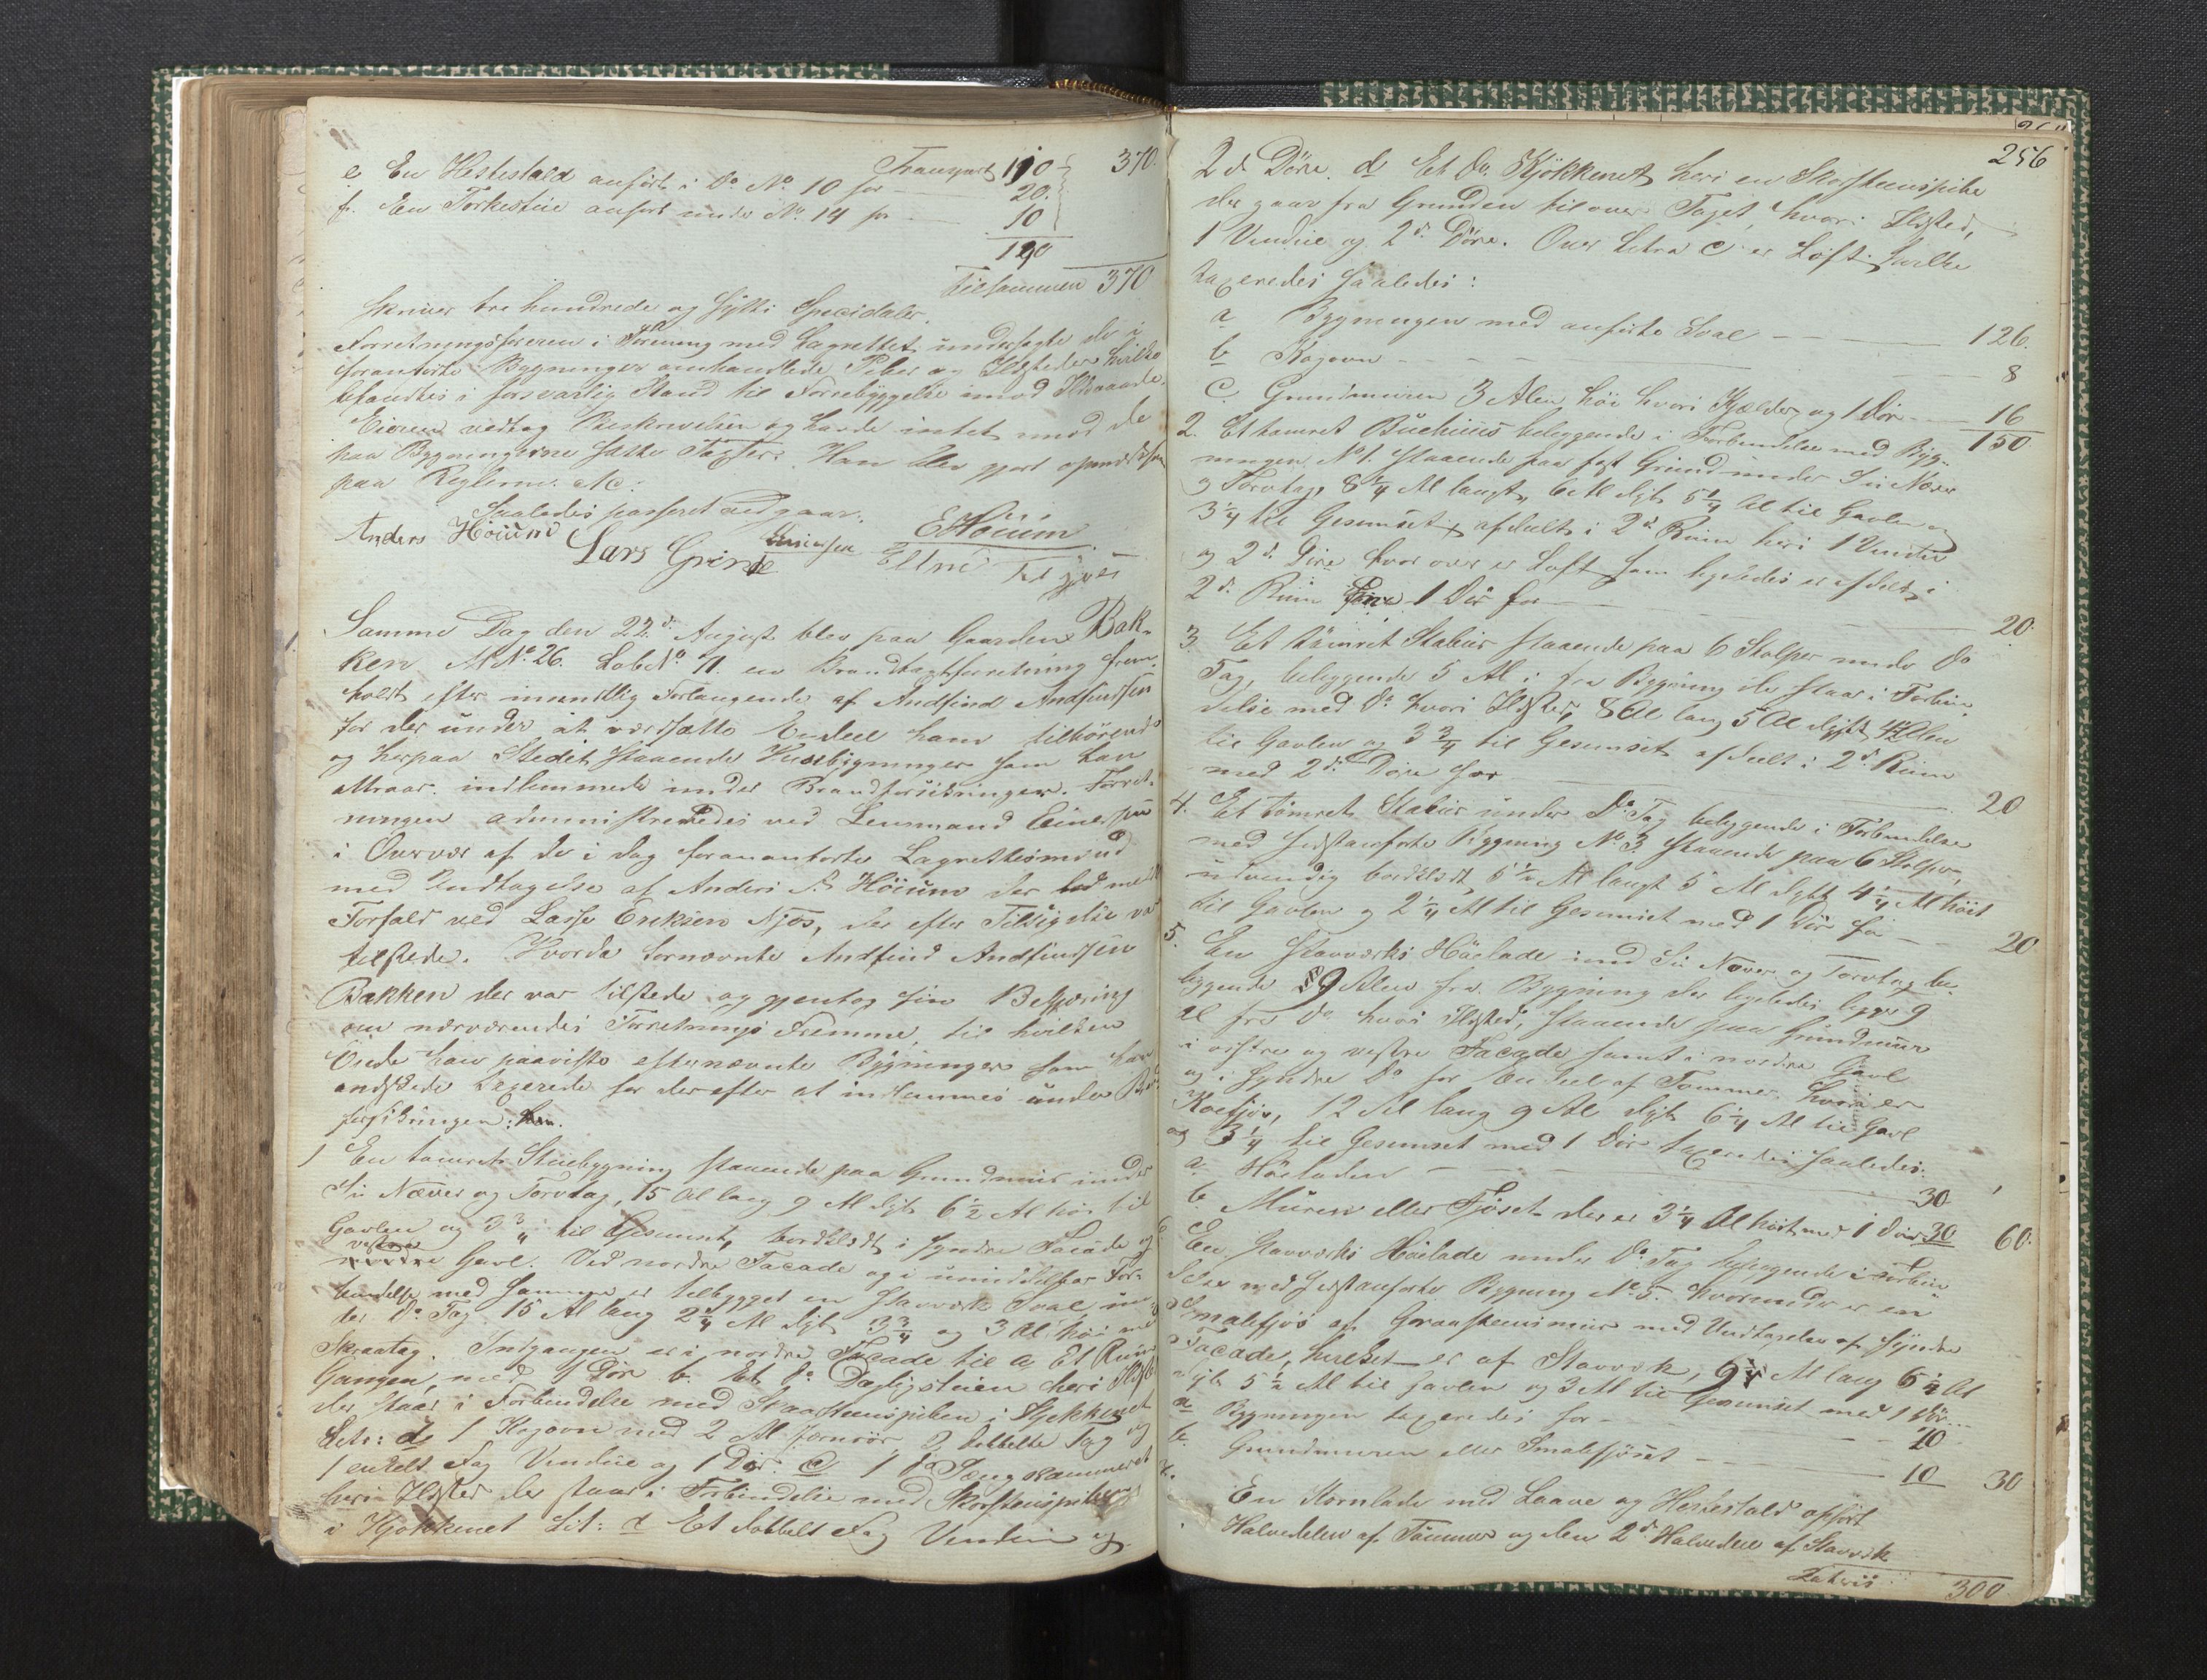 Transport 190 370.
e En Hestestald anført i Do No 10 for 20.
f. En Tørkestue anført under No. 14 for 10
190
tilsammen 370
skriver tre hundrede og sytti Specidaler.
Forretningsføreren i Forening med Lagrettet undersøgte de i
foranførte Bygninger omhandlede Piber og Ildsteder hvilke
befandtes i forsvarlig Stand til Forrebyggelse imod Ildsvaade.
Eieren vedtog Beskrivelsen og havde intet imod de
paa Bygningerne satte Taxter. Han blev gjort opmærksom
paa Reglerne. Mc:
Saaledes passeret udgaar.
Anders Høium Lars Grinde EHøium
Samme Dag den 22de August blev paa Gaarden Bak-
ken M No. 26. Løb No. 71. en Brandtaxtforretning frem-
holdt efter mundtlig Forlangende af Andfind Andfindsen
for der under at værdsætte Endeel ham tilhørende
og herpaa Stedet staaende Huusbygninger som han
attraar indlemmede under Brandforsikringen. Forret-
ningen administreredes ved Lensmand Einersen
i Overvær af de i dag foranførte Lagrettesmænd
med Undtagelse af Anders A. Høium der had meldt
Forfald ved Lasse Eriksen Njøs, der efter Tilsigelse var
tilstede. Hvorda fornævnte Andfind Andfindsen
Bakken der var tilstede og gjentog sin Begjæring
om nærværendes Forretnings Fremme, til hvilken
Ende han paaviste efternævnte Bygninger som han
ønskede taxerede for derefter at indlemmes under Brand
forsikringen:
1 En tømret Stuebygning staaende paa Grundmuur under
Su Næver og Torvtag, 15 Al lang 9 Al dyb 6 1/2 Al høi til
Gavlen og 3 3/4 til Gesimset, bordklædt i syndre Facade og
vestre
nordre Gavl. Ved nordre Facade og i umiddelbar For-
bindelse med samme er tilbygget en Stavværk Sval un-
der Do. Tag 15 Al lang 2 1/4 Al dyb 3 3/4 og 3 Al høi med
Skraatag. Indgangen er i nordre Facade til a Et Rum
Gangen, med 1 Dør b. Et Do Dagligstuen heri Ildsted
der staar i Forbindelse med Skorsteenspiben i Kjøkkenet
Litr: d, 1 Kogovn med 2 Al Jernrør, 2 dobbelte Fag og
1 enkelt Fag Vindue og 1 Dør. c 1 do Sængekammeret
heri Ildsted der staar i Forbindelse med Skorsteenspiben
i Kjøkkenet Lit: d Et dobbelt Fag Vindue og
256
2de Døre. d Et do. Kjøkkenet heri en Skorsteenspibe
der gaar fra Grunden til over Taget, hvori Ildsted,
1 Vindue og 2de Døre. Over Litra c er Loft hvilke
taxeredes saaledes:
a Bygningen med anførte Sval 126.
b Kogovn 8
c. Grundmuren 3 Alen høi hvori Kjælder og 1 Dør 16
150
2. Et tømret Buehuus beliggende i Forbindelse med Byg-
ningen No 1. staaende paa fast Grund under Su Næver
og Torvtag, 8 1/4 Al langt, 6 Al dybt 5 1/4 Al til Gavlen og
3 1/4 til Gesimset, afdeelt i 2de Rum heri 1 Vindue
og 2de Døre hvor over er Loft som ligeledes er afdeelt i
2de Rum 1 Dør for 20.
3. Et tømret Stabur staaende paa 6 Stolper under do
Tag, beliggende 5 Al: fra Bygning der staar i Forbin-
delse med do hvori Ildsted, 8 Al lang 5 Al dybt 4 Alen
til Gavlen og 3 3/4 til Gesimset afdeelt i 2de Rum
med 2de Døre for 20
4. Et tømret Stabur under Do. Tag beliggende i Forbindelse
med sidstanførte Bygning No. 3 staaende paa 6 Stolper,
udvendig bordklædt, 5 1/2 Al langt 5 Al dybt 4 1/4 Al høit
til Gavlen og 2 1/4 Al til Gesimset med 1 Dør for 20.
5. En Stavværks Høelade und Su Næver og Torvtag be-
liggende 9 Alen fra Bygning der ligeledes ligger 9
Al fra do hvori Ildsted, staaende paa Grundmuur
i østre og vestre Facade samt i nordre Gavl
og i syndre do for Endeel af Tømmer. hvori er
Koefjøs, 12 Al lang 9 Al dyb 6 1/4 Al til Gavl
og 3 1/4 til Gesimset med 1 Dør taxeredes saaledes:
a. Høeladen 30
b. Muren eller Fjøset der er 3 1/4 Al høit med 1 Dør 30 60.
6. En Stavværks Høelade under do Tag beliggende i Forbin-
delse med sidstanførte Bygning No. 5. hvorunder er en
Smalefjøs af Graasteensmuur med Undtagelse af syndre
Facade, hvilket er af Stavværk, 9 1/4 Al lang 6 1/2 Al
dyb 5 1/2 Al til Gavlen og 3 Al til Gesimset med 1 Dør
a Bygningen taxeredes for 20
b. Grundmuren eller Smalefjøset 10 30
7. En Kornlade med Laave og Hestestald opført
Halvdelen af Tømmer og den 2de Halvdeel af Stavværk
Latus 300.